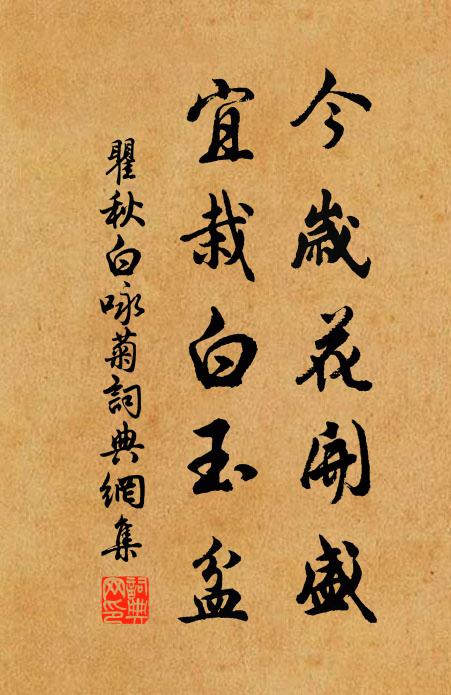 今歲花開盛
宜栽白玉盆
瞿秋白咏菊詞典網集
詞典網印